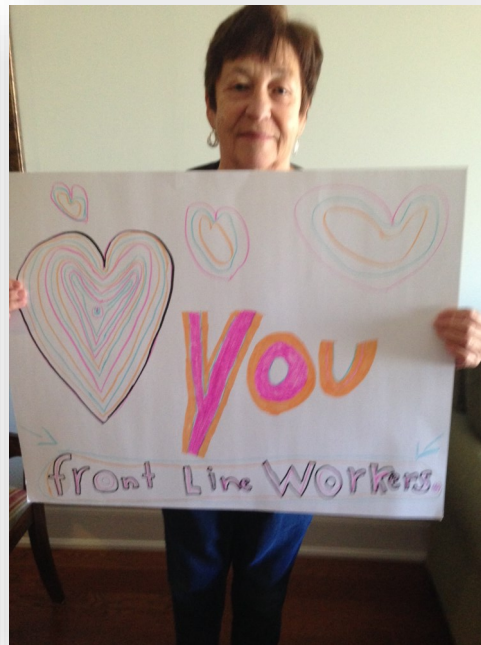 you
front Line Workers.